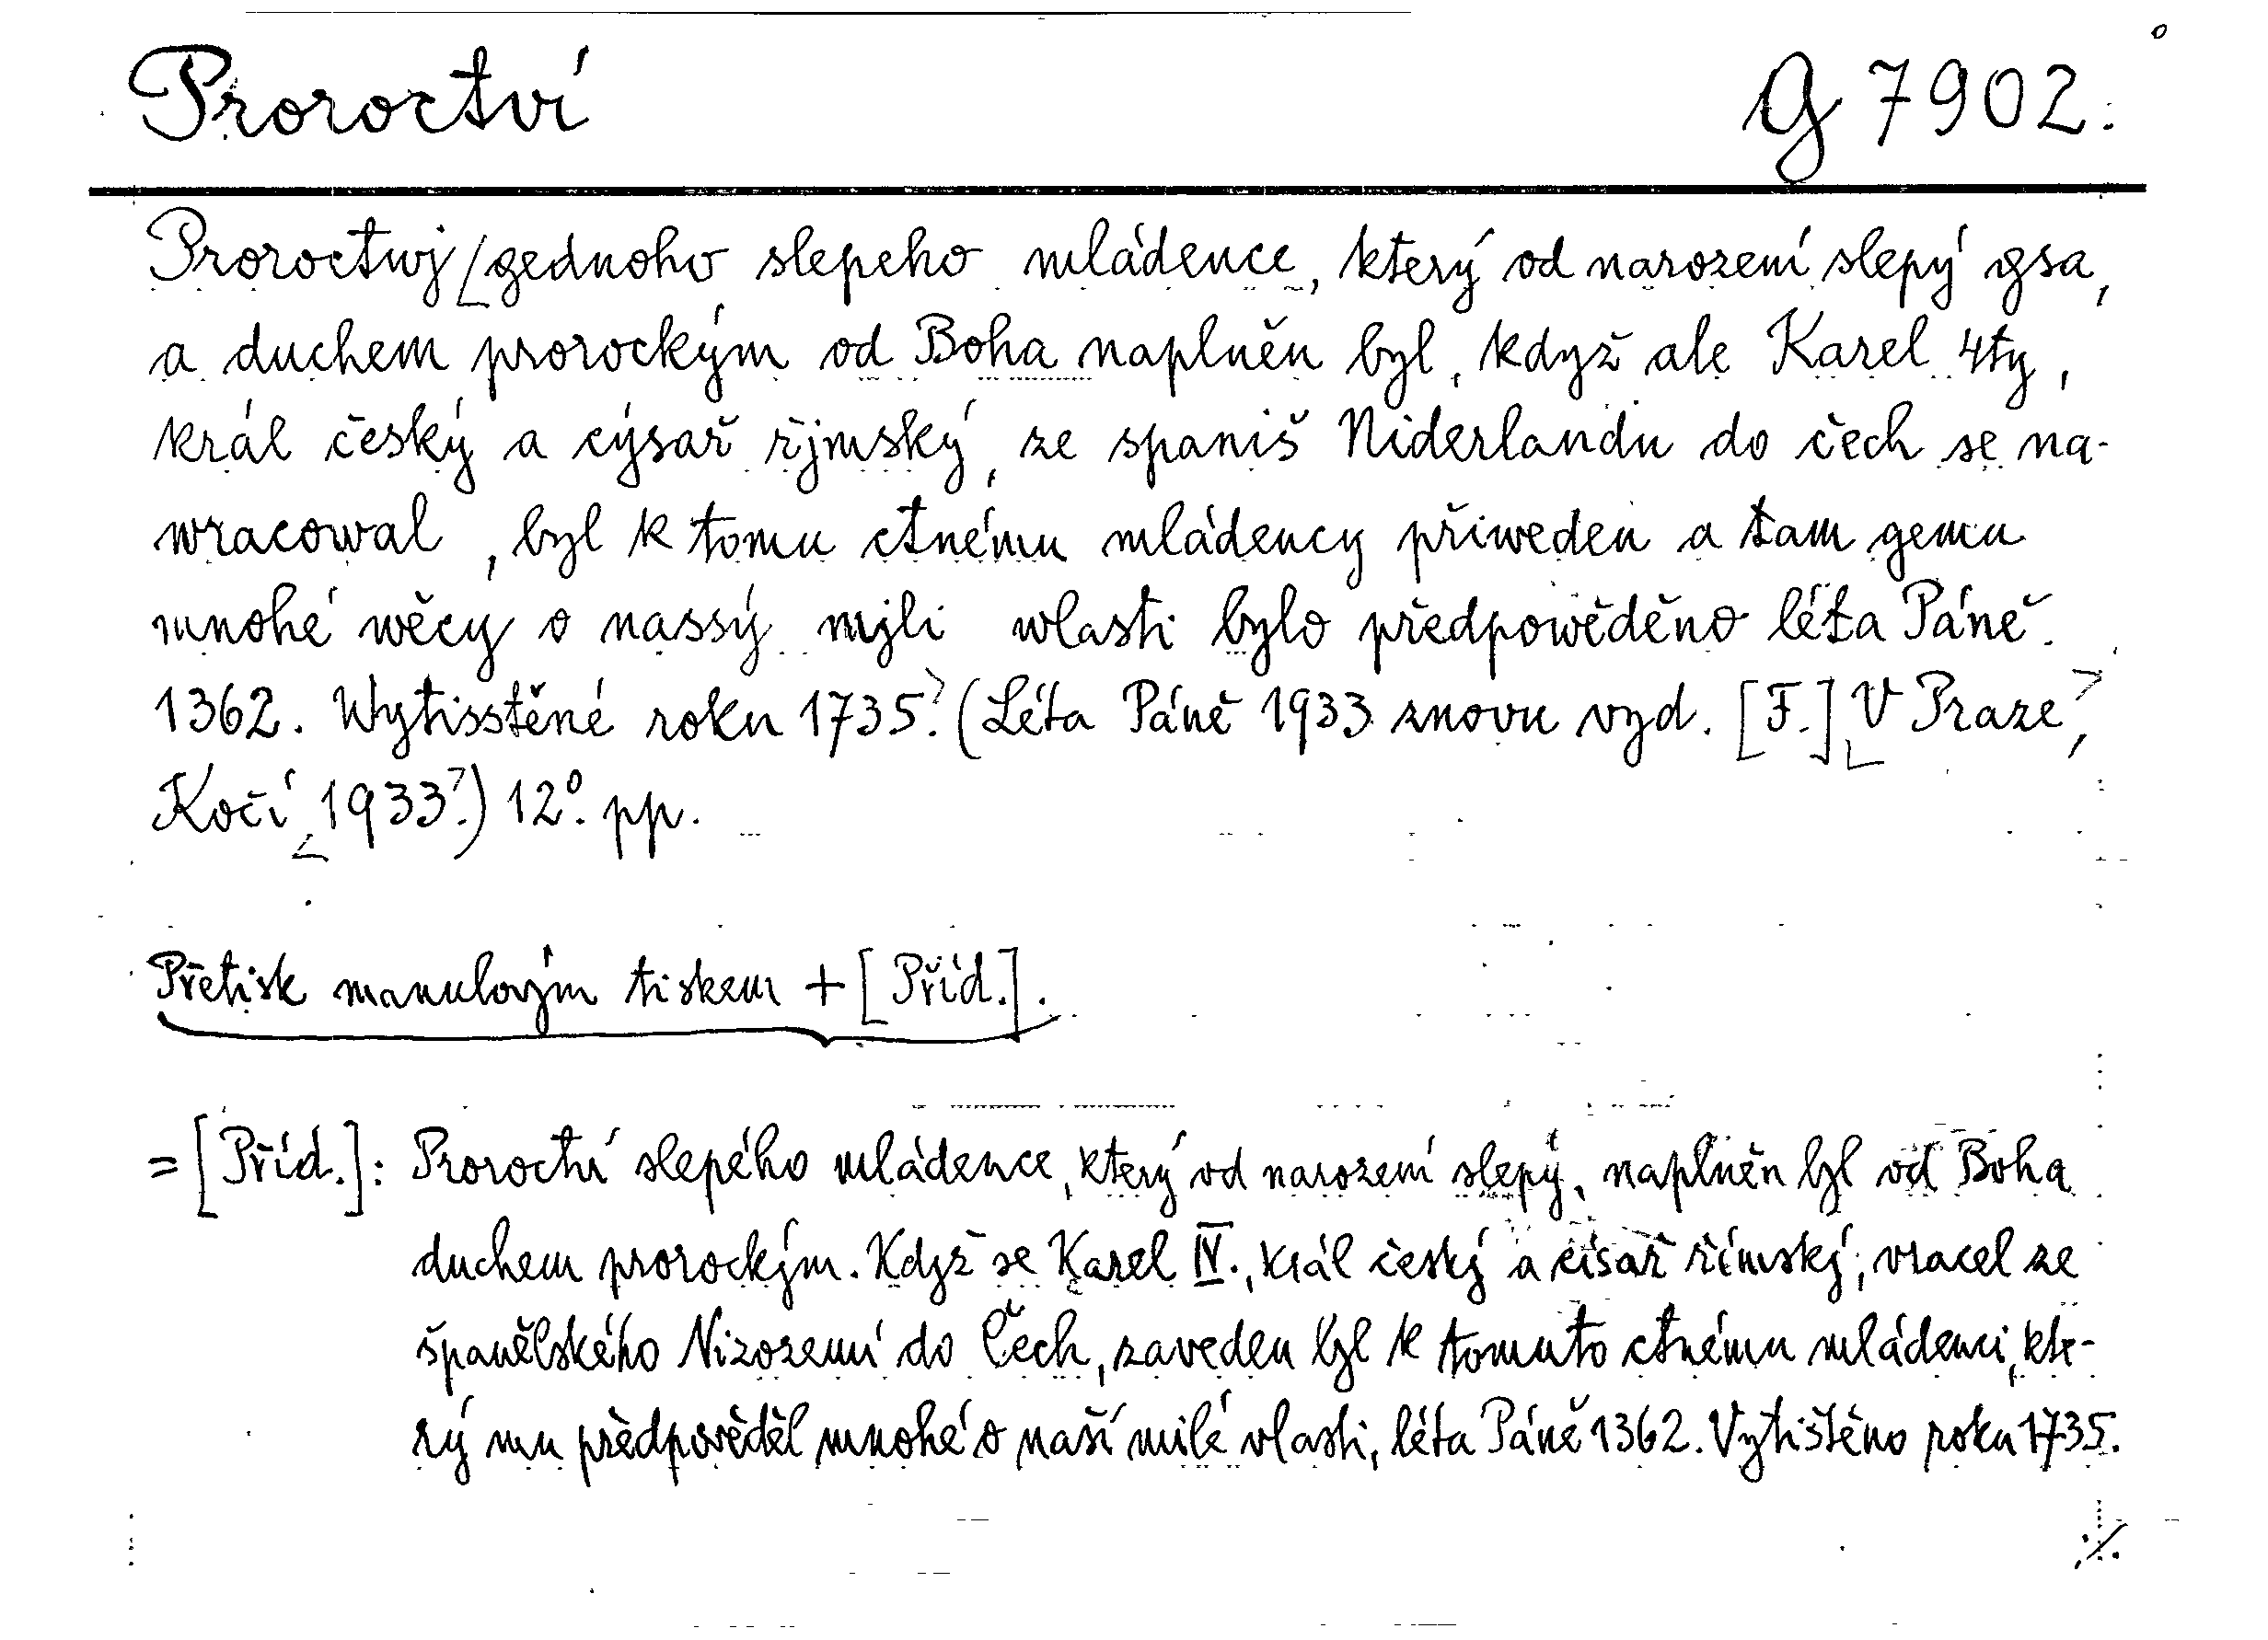 Proroctví G 7902.
Proroctwj [gednoho slepeho mládence, který od narození slepý gsa,
a duchem prorockým od Boha naplněn byl, když ale Karel 4tý,
král český a cýsař řjmský, ze spaniš Niderlandu do čech se na-
wracowal, byl k tomu ctnému mládency přiweden a tam gemu
mnohé wěcy o nassý mjli wlasti bylo předpowěděno léta Páně
1362. Wytisstěné roku 1735.] (Léta Páně 1933 znovu vyd. [F.] [V Praze],
Kočí [1933].) 12°. pp.
Přetisk manulovým tiskem + [Příd.].
= [Příd.]: Proroctví slepého mládence, který od narození slepý, naplněn byl od Boha
duchem prorockým. Když se Karel IV., král český a císař římský, vracel ze
španělského Nizozemí do Čech, zaveden byl k tomuto ctnému mládenci, kte-
rý mu předpověděl mnohé o naší milé vlasti, léta Páně 1362. Vytištěno roku 1735.
./.